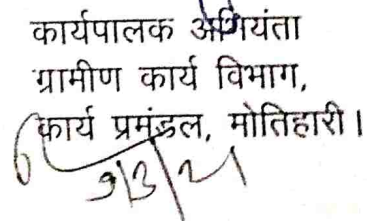 कार्यपालक अभियंता
ग्रामीण कार्य विभाग,
कार्य प्रमंडल, मोतिहारी।
9/3/21